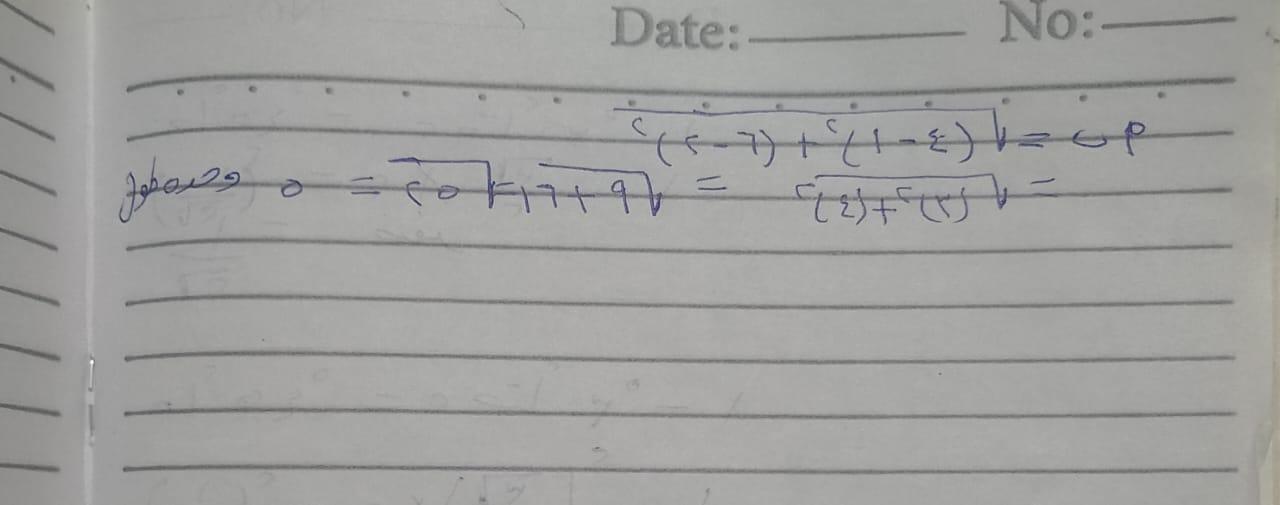 Date: No:
م ب = √(٤ - ١)² + (٦ - ٢)²
= √(٣)² + (٤)² = √٩ + ١٦ = √٢٥ = ٥ وحدة طول